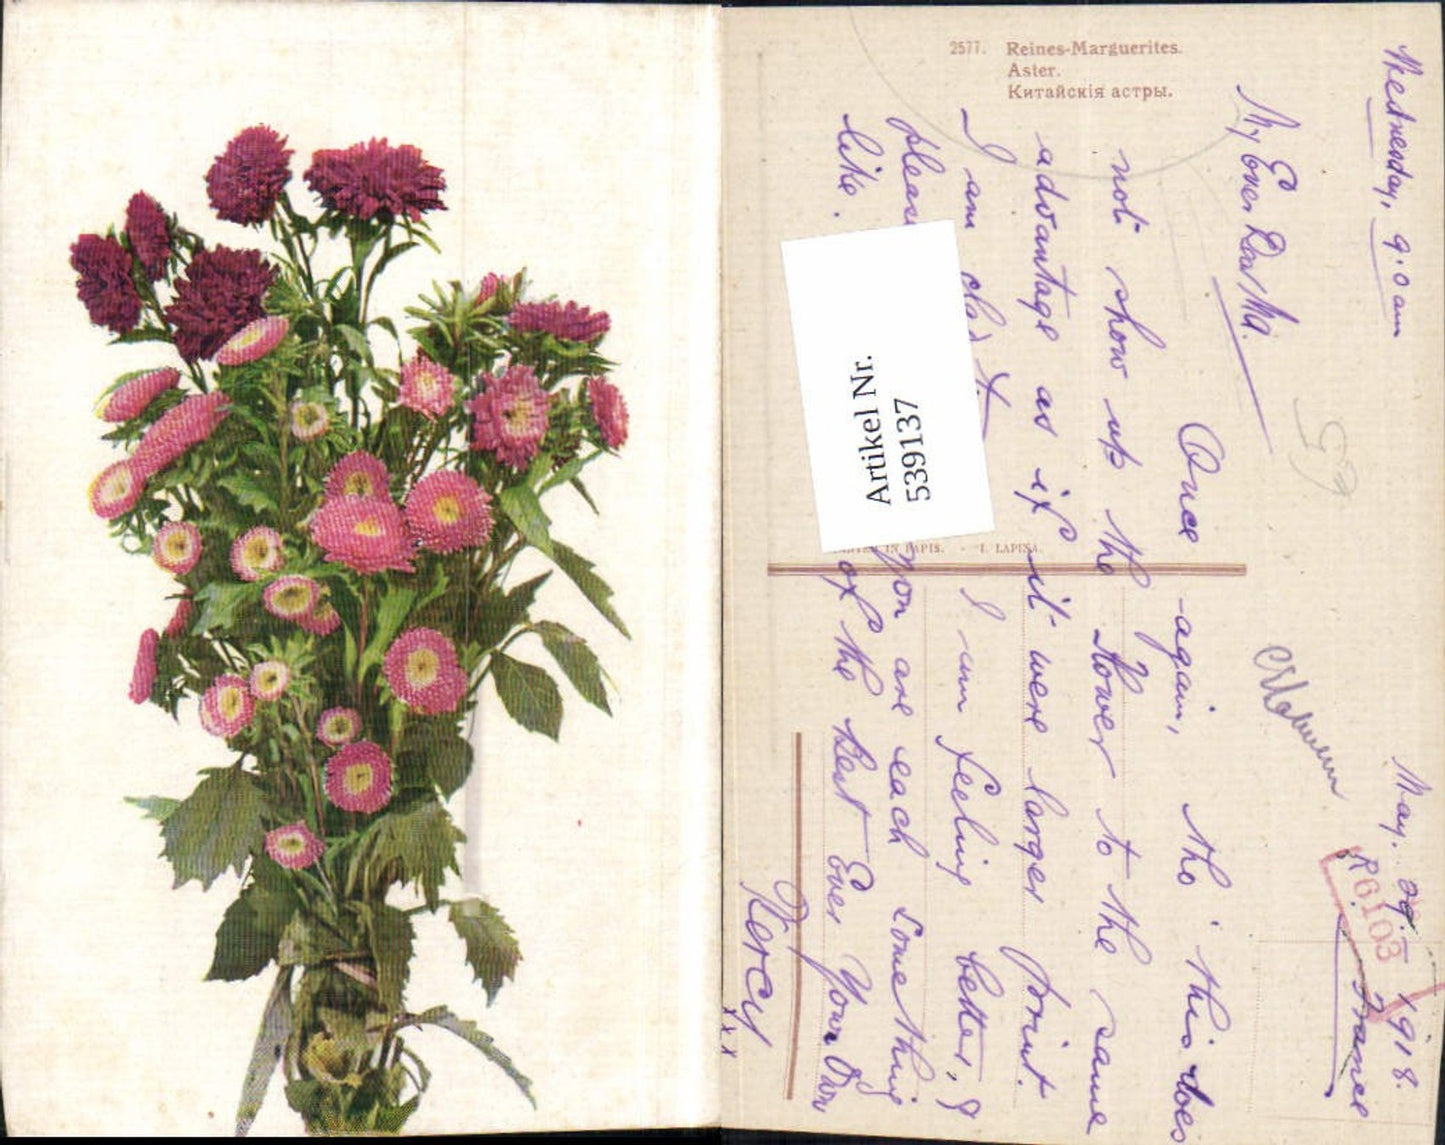 2577. Reines-Marguerites.
Aster.
Китайскія астры.
Wednesday, 9.0 am
May. 29. 1918.
France
My Ever Dear Ma.
Once again, tho' this does
not show up the flower to the same
advantage as if it were larger print.
I am glad I am feeling better, &
please you are each something
like. of the best Ever Your Own
Percy
x x x
Artikel Nr.
539137
IN PARIS. - I. LAPINA.
R. 6103
59